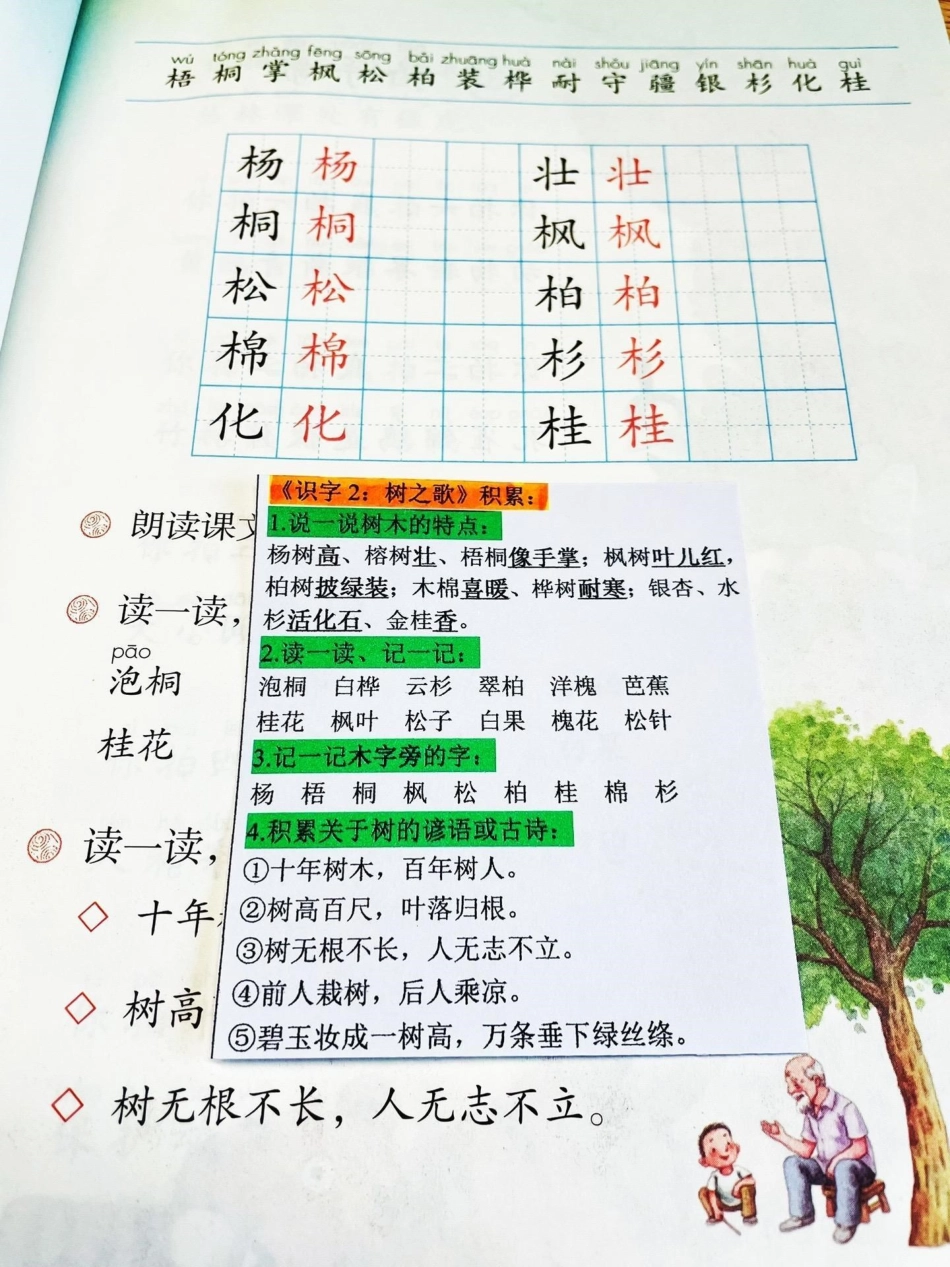 wú tóng zhǎng fēng sōng bǎi zhuāng huà nài shǒu jiāng yín shān huà guì
梧 桐 掌 枫 松 柏 装 桦 耐 守 疆 银 杉 化 桂
杨 杨 壮 壮
桐 桐 枫 枫
松 松 柏 柏
棉 棉 杉 杉
化 化 桂 桂
朗读课文
读一读，
pāo
泡桐
桂花
读一读，
十年
树高
树无根不长，人无志不立。
《识字2：树之歌》积累：
1.说一说树木的特点：
杨树高、榕树壮、梧桐像手掌；枫树叶儿红，
柏树披绿装；木棉喜暖、桦树耐寒；银杏、水
杉活化石、金桂香。
2.读一读、记一记：
泡桐 白桦 云杉 翠柏 洋槐 芭蕉
桂花 枫叶 松子 白果 槐花 松针
3.记一记木字旁的字：
杨 梧 桐 枫 松 柏 桂 棉 杉
4.积累关于树的谚语或古诗：
①十年树木，百年树人。
②树高百尺，叶落归根。
③树无根不长，人无志不立。
④前人栽树，后人乘凉。
⑤碧玉妆成一树高，万条垂下绿丝绦。